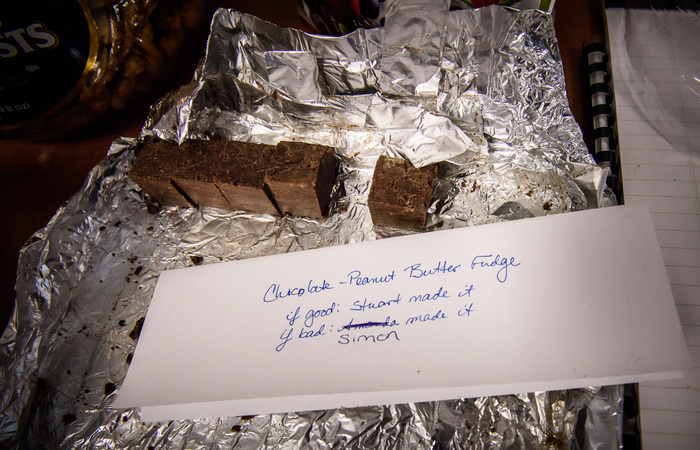 STS
Chocolate-Peanut Butter Fudge
if good: Stuart made it
if bad: Amanda made it
Simon